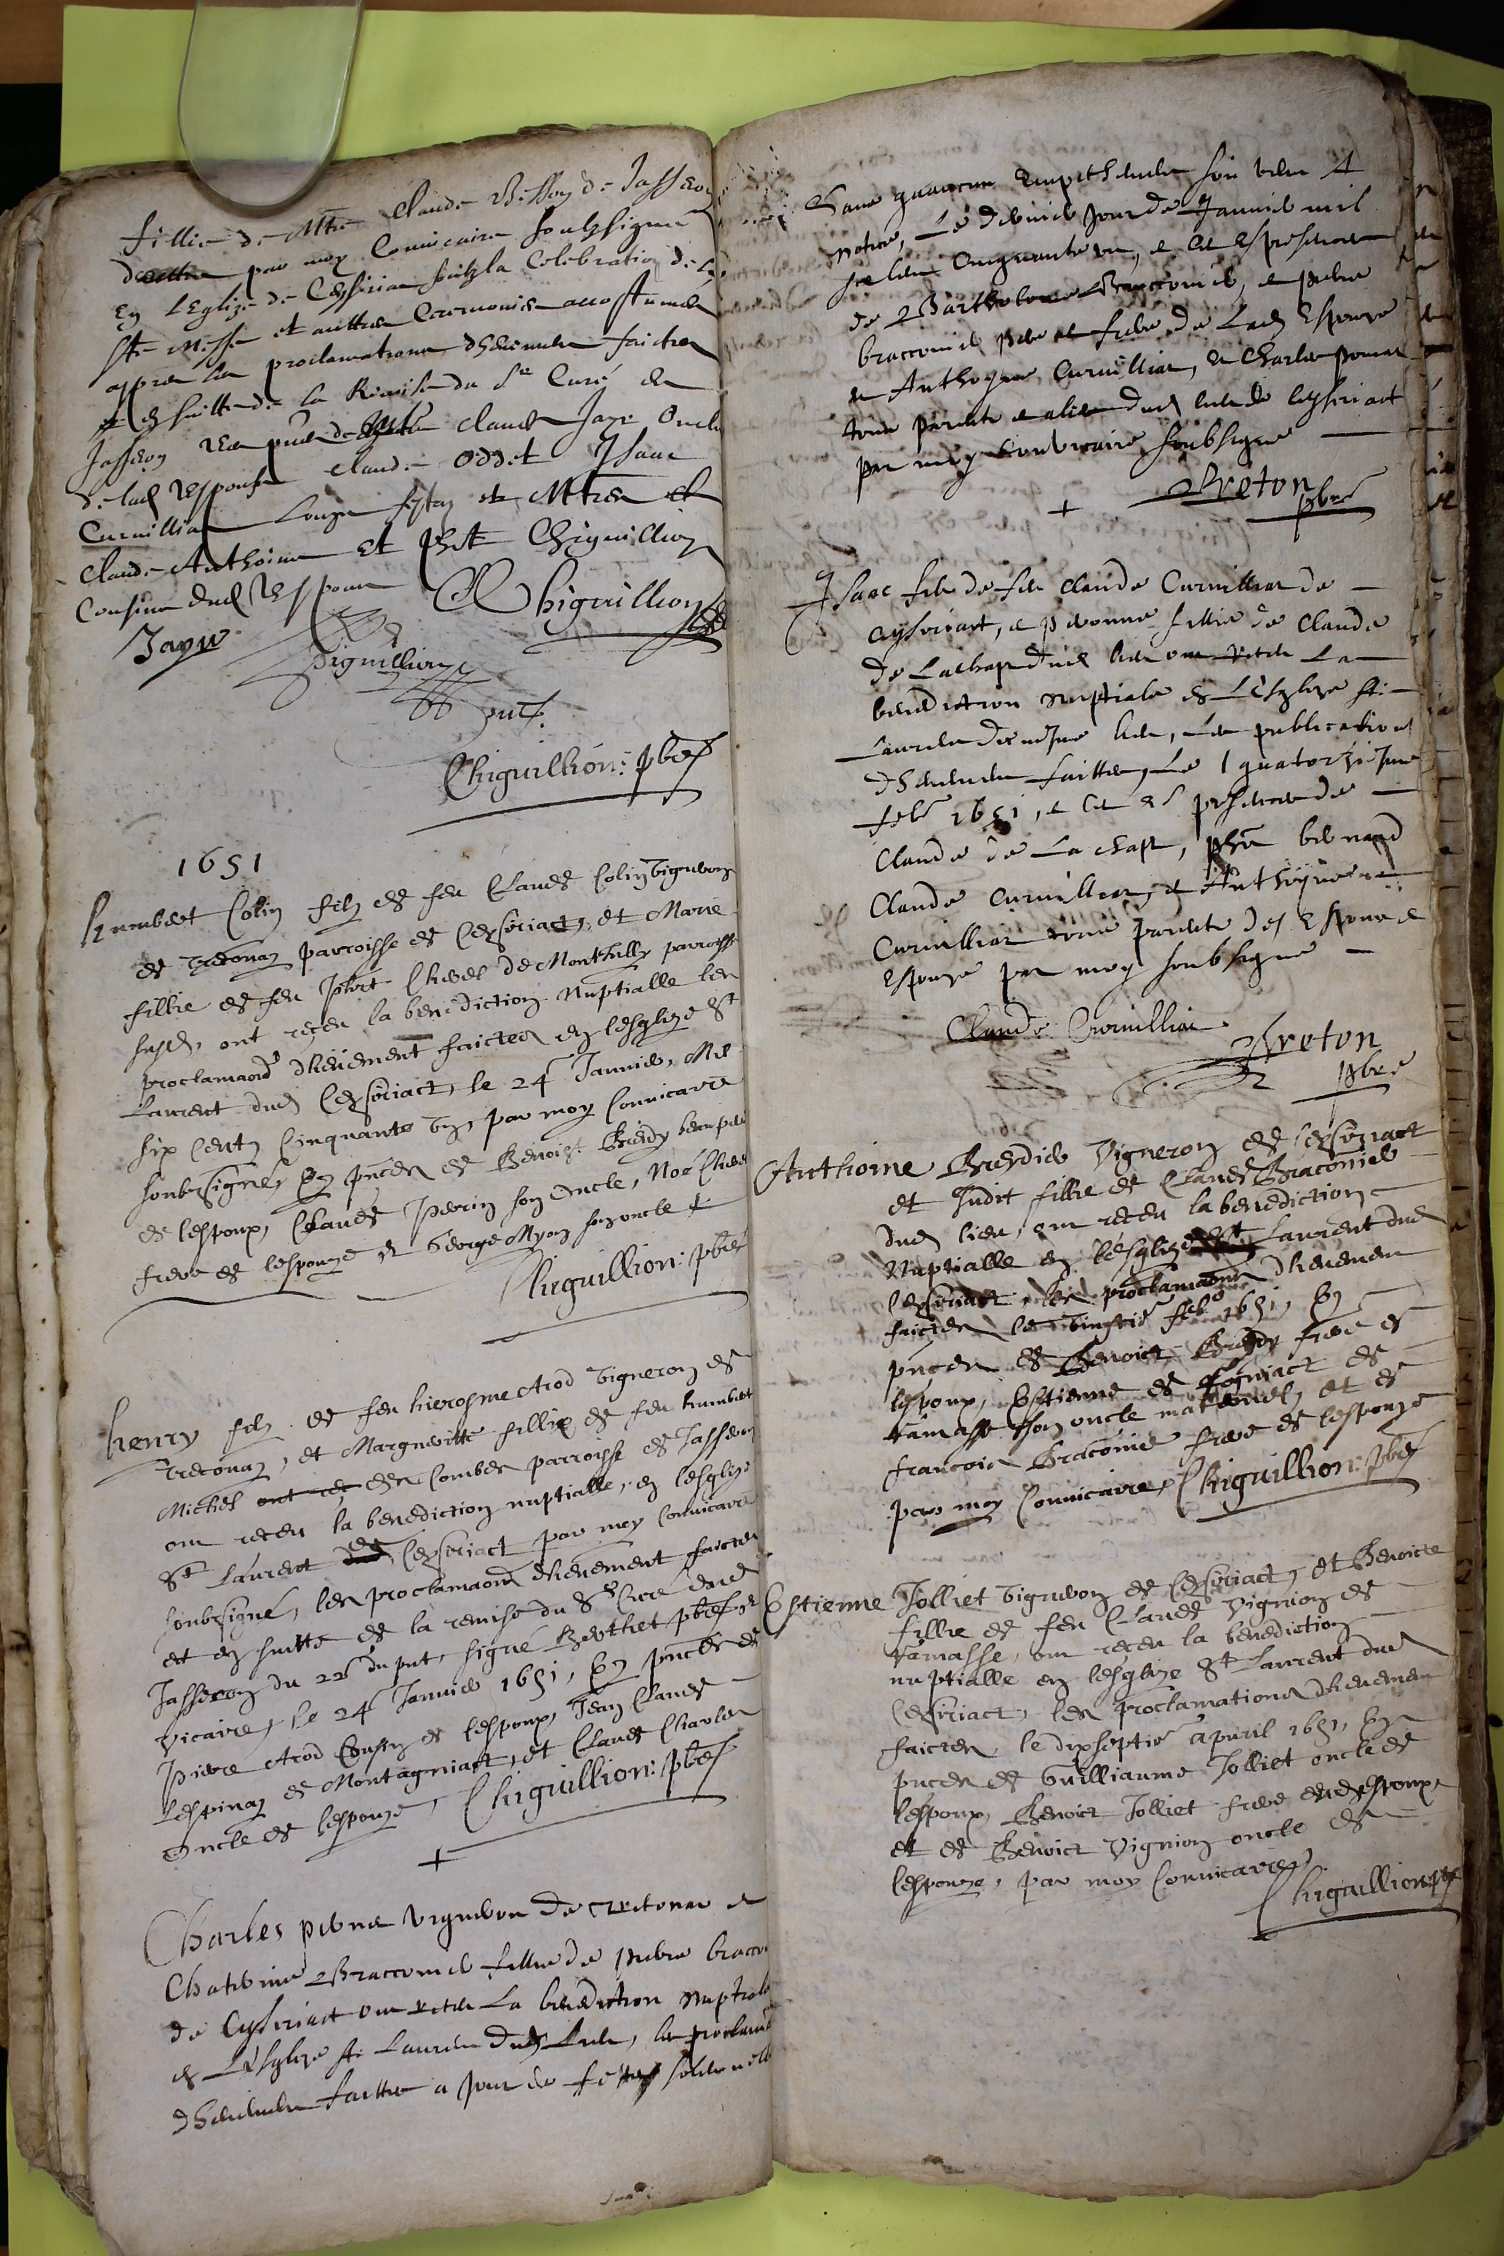 fillie de Mtre Claude Besson de Jasseron
par moy Convicaire soubzsigné
En Leglize de Ceyseriat la Celebration de la
Ste Messe et aultres Ceremonies accostumees
appres les proclamations dheuement faictes
et en suitte de la Remise du Sr Curé de
Jasseron Claude Jaye Oncle
de lad Espouse Claude Oddet Ysaac
Curvilliat et Mtres
Claude Anthoine et Phet Chiguillion
Cousins dud Espoux Chiguillion
Jaye
Chiguillion
Chiguillion: pbre
1651
humbert Colin filz de feu Claude Colin Vigneron
de treconaz parroisse de Ceyseriact, et Marie
fillie de feu Phet Chevel de Monthilly parroisse
susd, ont receu la benediction Nuptialle les
proclamaons dheuement faictes en lesglize St
Laurent dud Ceyseriact, le 24e Janvier, Mil
six Centz Cinquante Un, par moy Convicaire
soubzsigné, En pnces de Benoist Bredy beau pere
de lespoux, Claude Perrin son Oncle, Noé Chevel
frere de lespouze, et George Myon son oncle
Chiguillion: pbre
henry filz de feu hierosme Arod Vigneron de
treconaz, et Margueritte fillie de feu humbert
Michel ont rec des Combes parroisse de Jasseron
ont receu la benediction nuptialle, en lesglize
St Laurent dud de Ceyseriact par moy Convicaire
soubzsigné, les proclamaons dheuement faictes
et en suitte de la remise du Sr Curé dud
Jasseron du 22e du pnt, signé Berthet pbre et
Vicaire, le 24e Janvier 1651, En pnces de
Pierre Arod Cousin de lespoux, Jean Claude
Lespinaz de Montagniact, et Claude Charles
Oncle de lespouze, Chiguillion: pbre
Charles perne Vigneron de treconas et
Chaterine Bracconier fillie de pierre bracco
de Ceyseriact ont receu La benediction nuptiale
en LEsglize St Laurens dud Lieu, les proclam
dheuement faittes a jour de festes solennelles
Sans quaucun Empeschement soit venu A
notice, Le dernier Jour de Janvier mil
six cens cinquante un, et ce En presence
de Bartholome Bracconier, et pierre
bracconier pere et frere de Lad Espouze
et Anthoyne Curvilliat, et Charles pomat
tous parents et aliez dud lieu de Ceyseriact
par moy Convicaire soubsigne
Breton
pbre
Isaac fils de feu Claude Curvilliat de
Ceyseriact, et pernonne fillie de Claude
de Lachapt dud lieu ont receu La
benediction nuptiale en LEsglize St
Laurens du mesme lieu, les publications
dheuement faittes, Le quatorziesme
febr 1651, et ce En presence de
Claude de La chapt, phi bernard
Claude Curvilliat, et Anthoyne
Curvilliat tous parents des Espoux et
Espouze par moy soubsigne
Claude Curvilliat
Breton
pbre
Anthoine Bredier Vigneron de Ceyseriact
et Judit fillie de Claude Braconier
dud lieu, ont receu la benediction
Nuptialle en lesglize St Laurent dud
Ceyseriact, les proclamaons dheuement
faictes le vingtie feb 1651, En
pnces de Benoict Bredy frere de
lespoux, Estienne de de
ramasse son oncle maternel, et de
francois Braconier frere de lespouze
par moy Convicaire, Chiguillion: pbre
Estienne Jolliet Vigneron de Ceyseriact, et Benoicte
fillie de feu Claude Vignion de
ramasse, ont receu la benediction
nuptialle en lesglize St Laurent dud
Ceyseriact, les proclamations dheuement
faictes, le dixseptie apvril 1651, En
pnces de Guilliaume Jolliet oncle de
lespoux, Benoict Jolliet frere dud Espoux
et de Benoict Vignion oncle de
lespouze, par moy Convicaire,
Chiguillion pbre